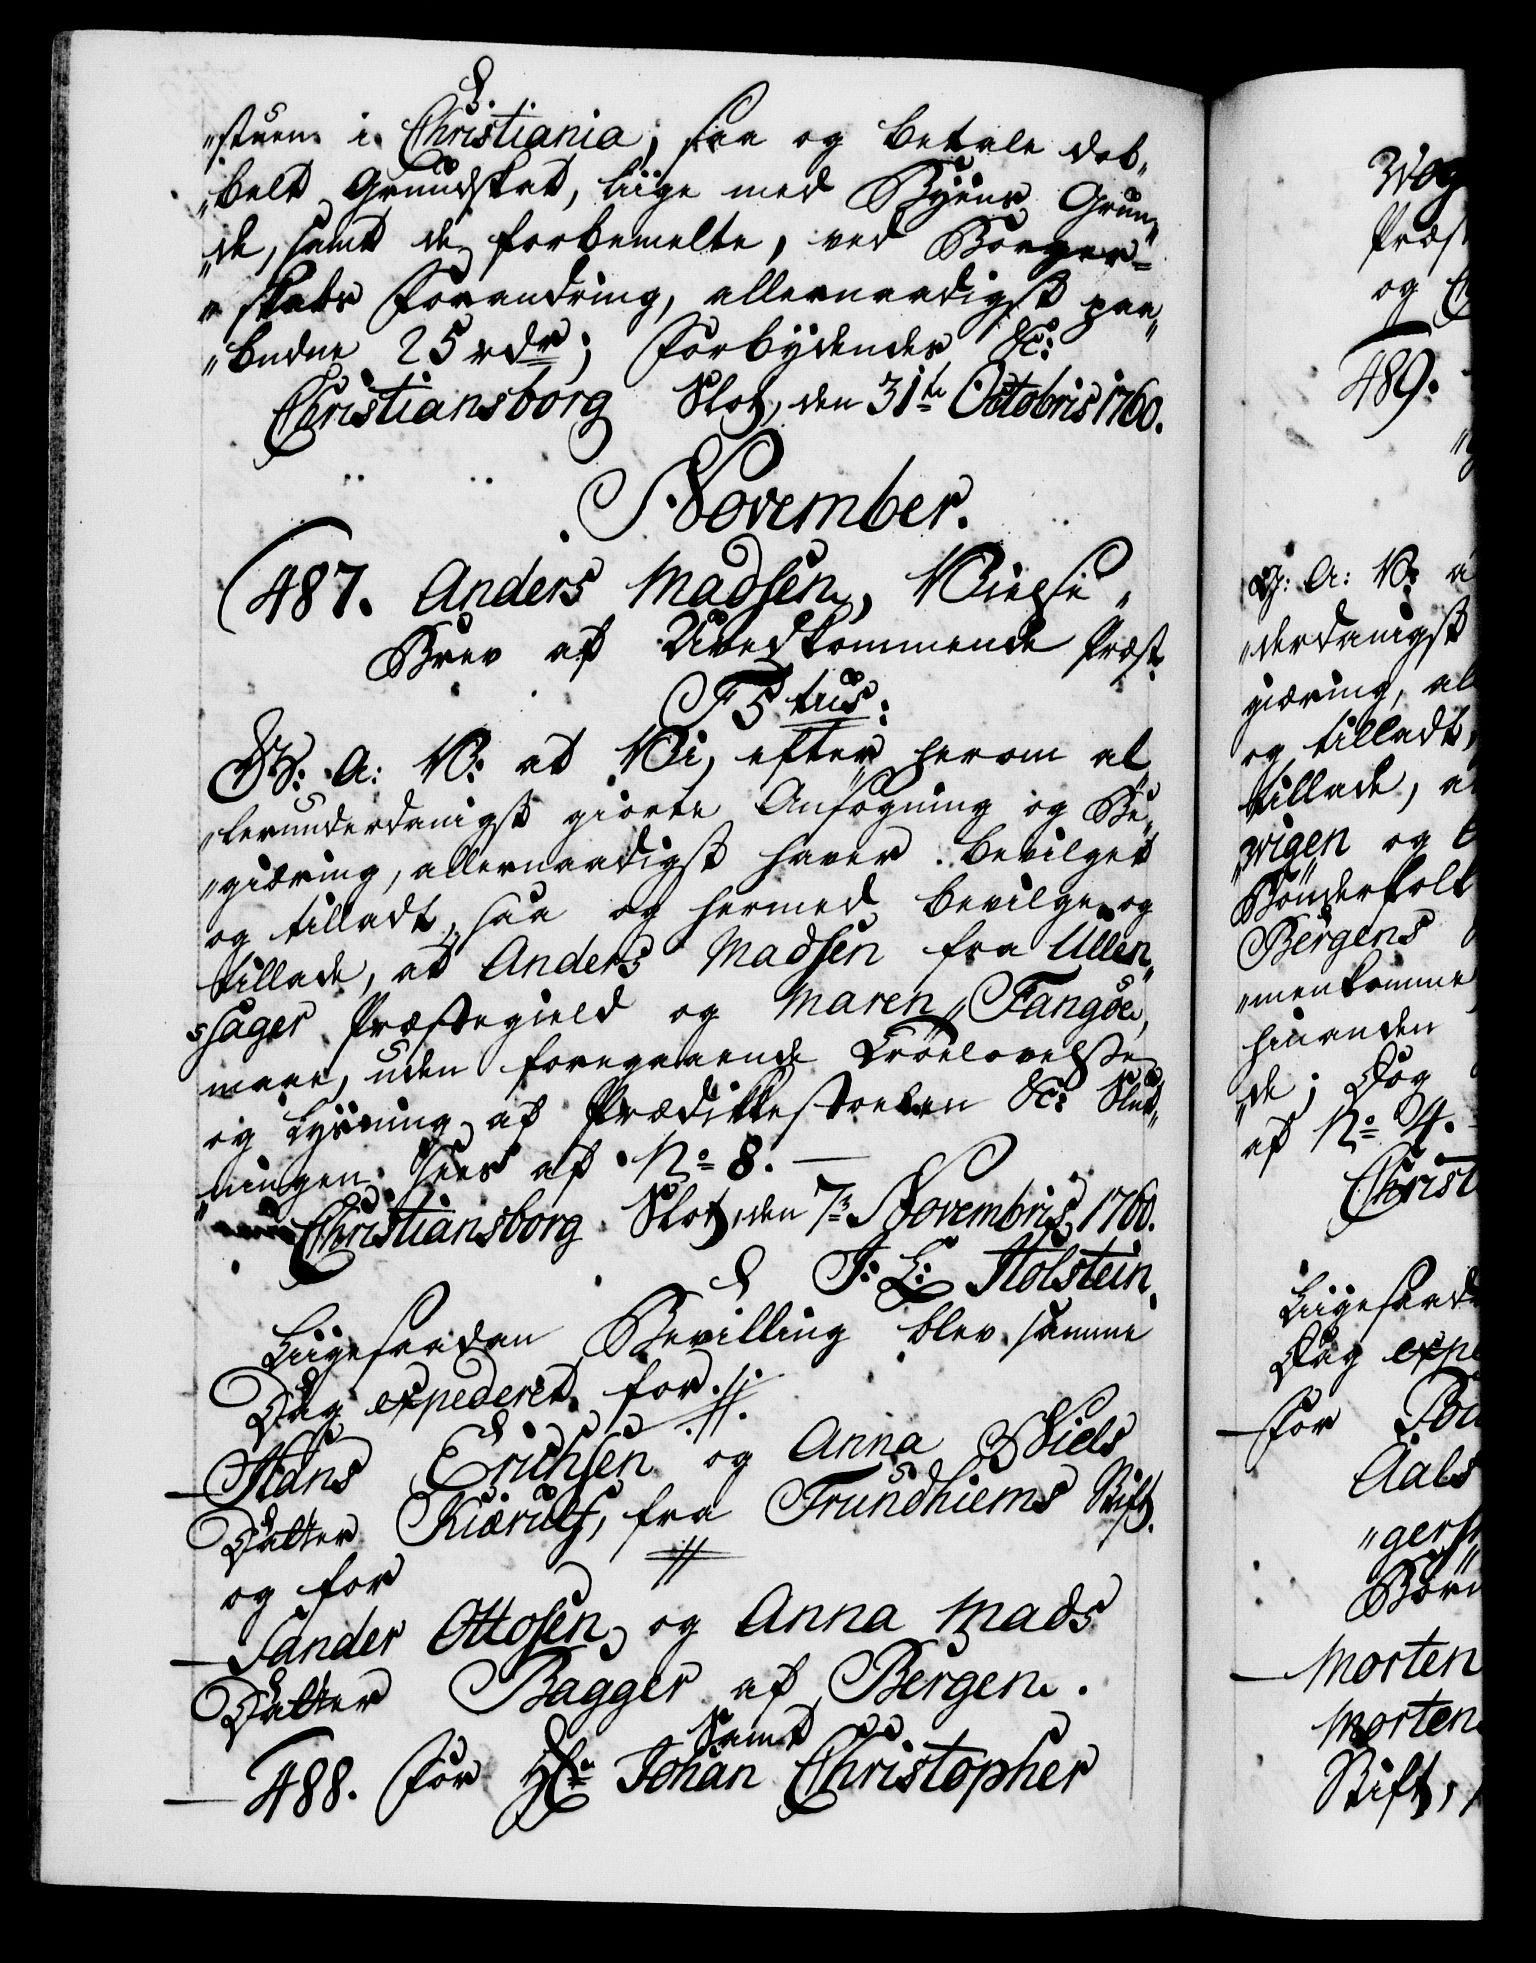 "stuen i Christiania, saa og betale dob-
"belt Grundskat, liige med Byens Grun-
"de, samt de forbemelte, ved Borger-
"skabs Forandring, allernaadigst paa-
"budne 25 rdr; Forbydendes &c:
Christiansborg Slot, den 31te Octobris 1760.
November.
487. Anders Madsen, Vielse-
Brev af Uvedkommende Præst.
F 5 tus:
G: A: V: at Vi, efter herom al-
"lerunderdanigst giorte Ansøgning og Be-
"giæring, allernaadigst haver bevilget
og tilladt, saa og hermed bevilge og
tillade, at Anders Madsen fra Ullen-
"sager Præstegield og Maren Fangøe,
maae, uden foregaaende Troelovelse
og Lysning af Prædikkestoelen &c: Slut-
"ningen sees af No 8.
Christiansborg Slot, den 7de Novembris 1760.
J: L: Holstein.
Liigesaadan Bevilling blev samme
Dag expederet for
Hans Erichsen og Anna Niels
Datter Kiærulf, fra Trundhiems Stift.
og for
Sander Ottosen og Anna Mads
Datter Bagger af Bergen.
Samt
488. For Hr Johan Christopher
Wog
Præst
og
489.
G: A: V: a
"derdanigst
giæring, al
og tilladt,
tillade, a
"wigen og
Bønderfolk
Bergens
"menkomme
hinanden
"de; Dog
af No 4.
Christ
Liigesaada
Dag expe
for
Aals
"gers
Børn
Morten
Morten
Stift,